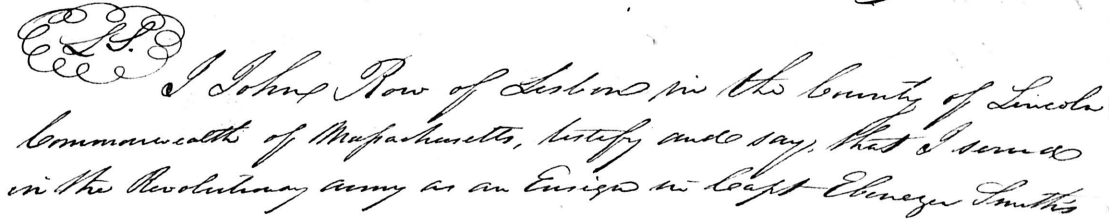 L.S.
I John Row of Lisbon in the County of Lincoln
Commonwealth of Massachusetts, testify and say, that I served
in the Revolutionary army as an Ensign in Capt Ebenezer Smith's